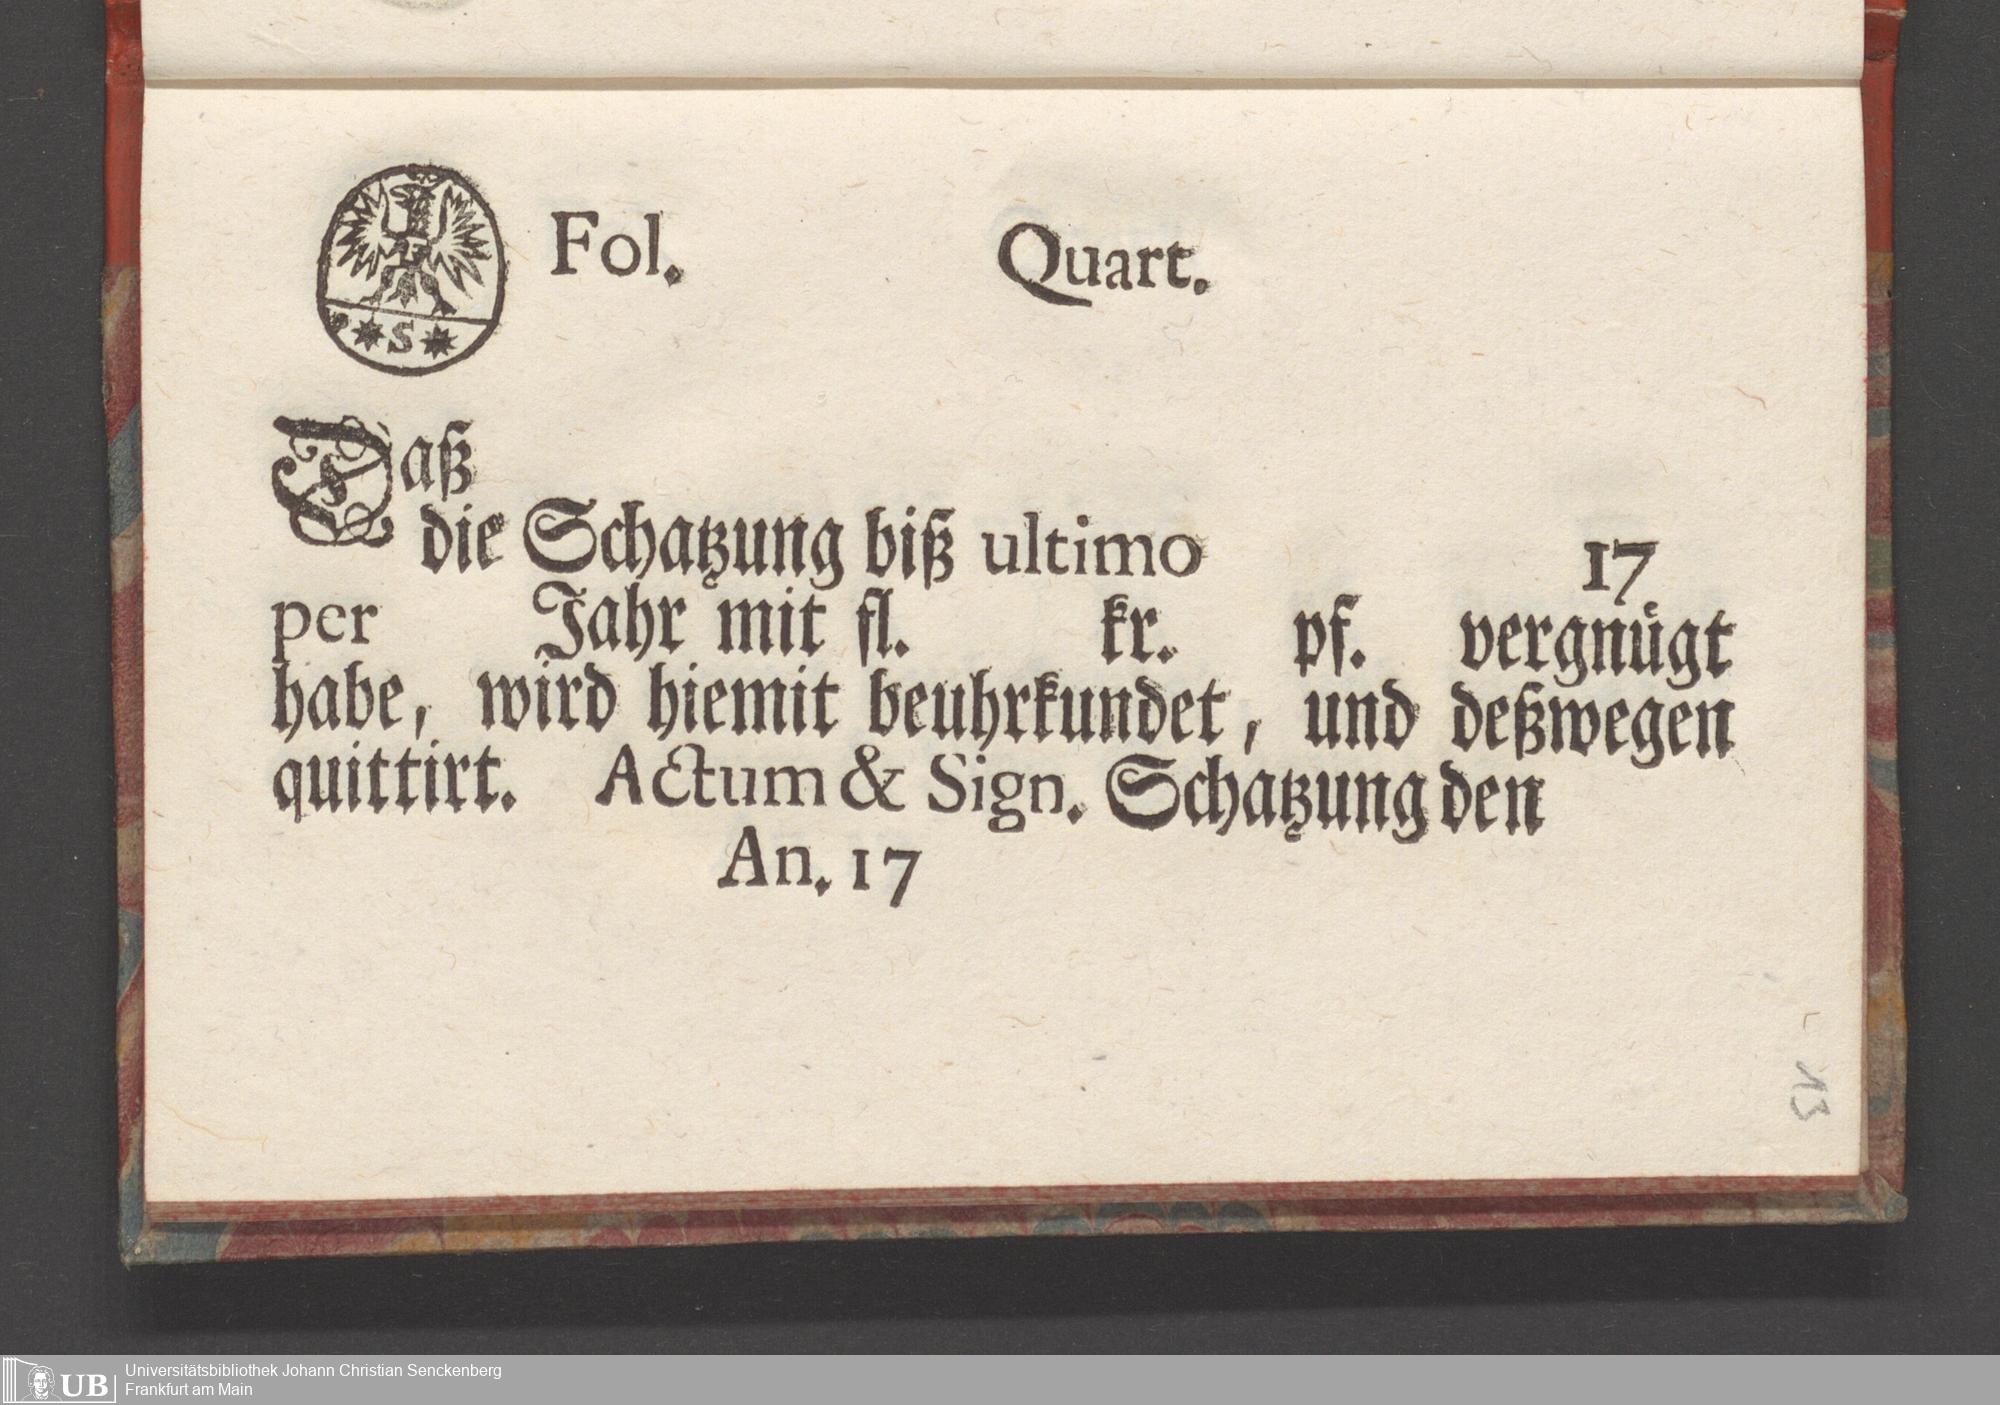 S
Fol. Quart.
Daß
die Schatzung biß ultimo 17
per Jahr mit fl. kr. pf. vergnügt
habe, wird hiemit beuhrkundet, und deßwegen
quittirt. Actum & Sign. Schatzung den
An. 17
13
UB
Universitätsbibliothek Johann Christian Senckenberg
Frankfurt am Main